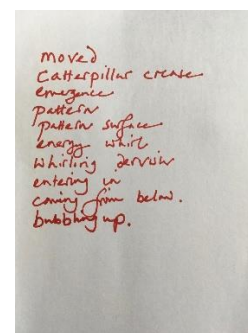 moved
Catterpillar crease
emergence
pattern
pattern surface
energy whirl
whirling dervish
entering in
coming from below.
bubbling up.